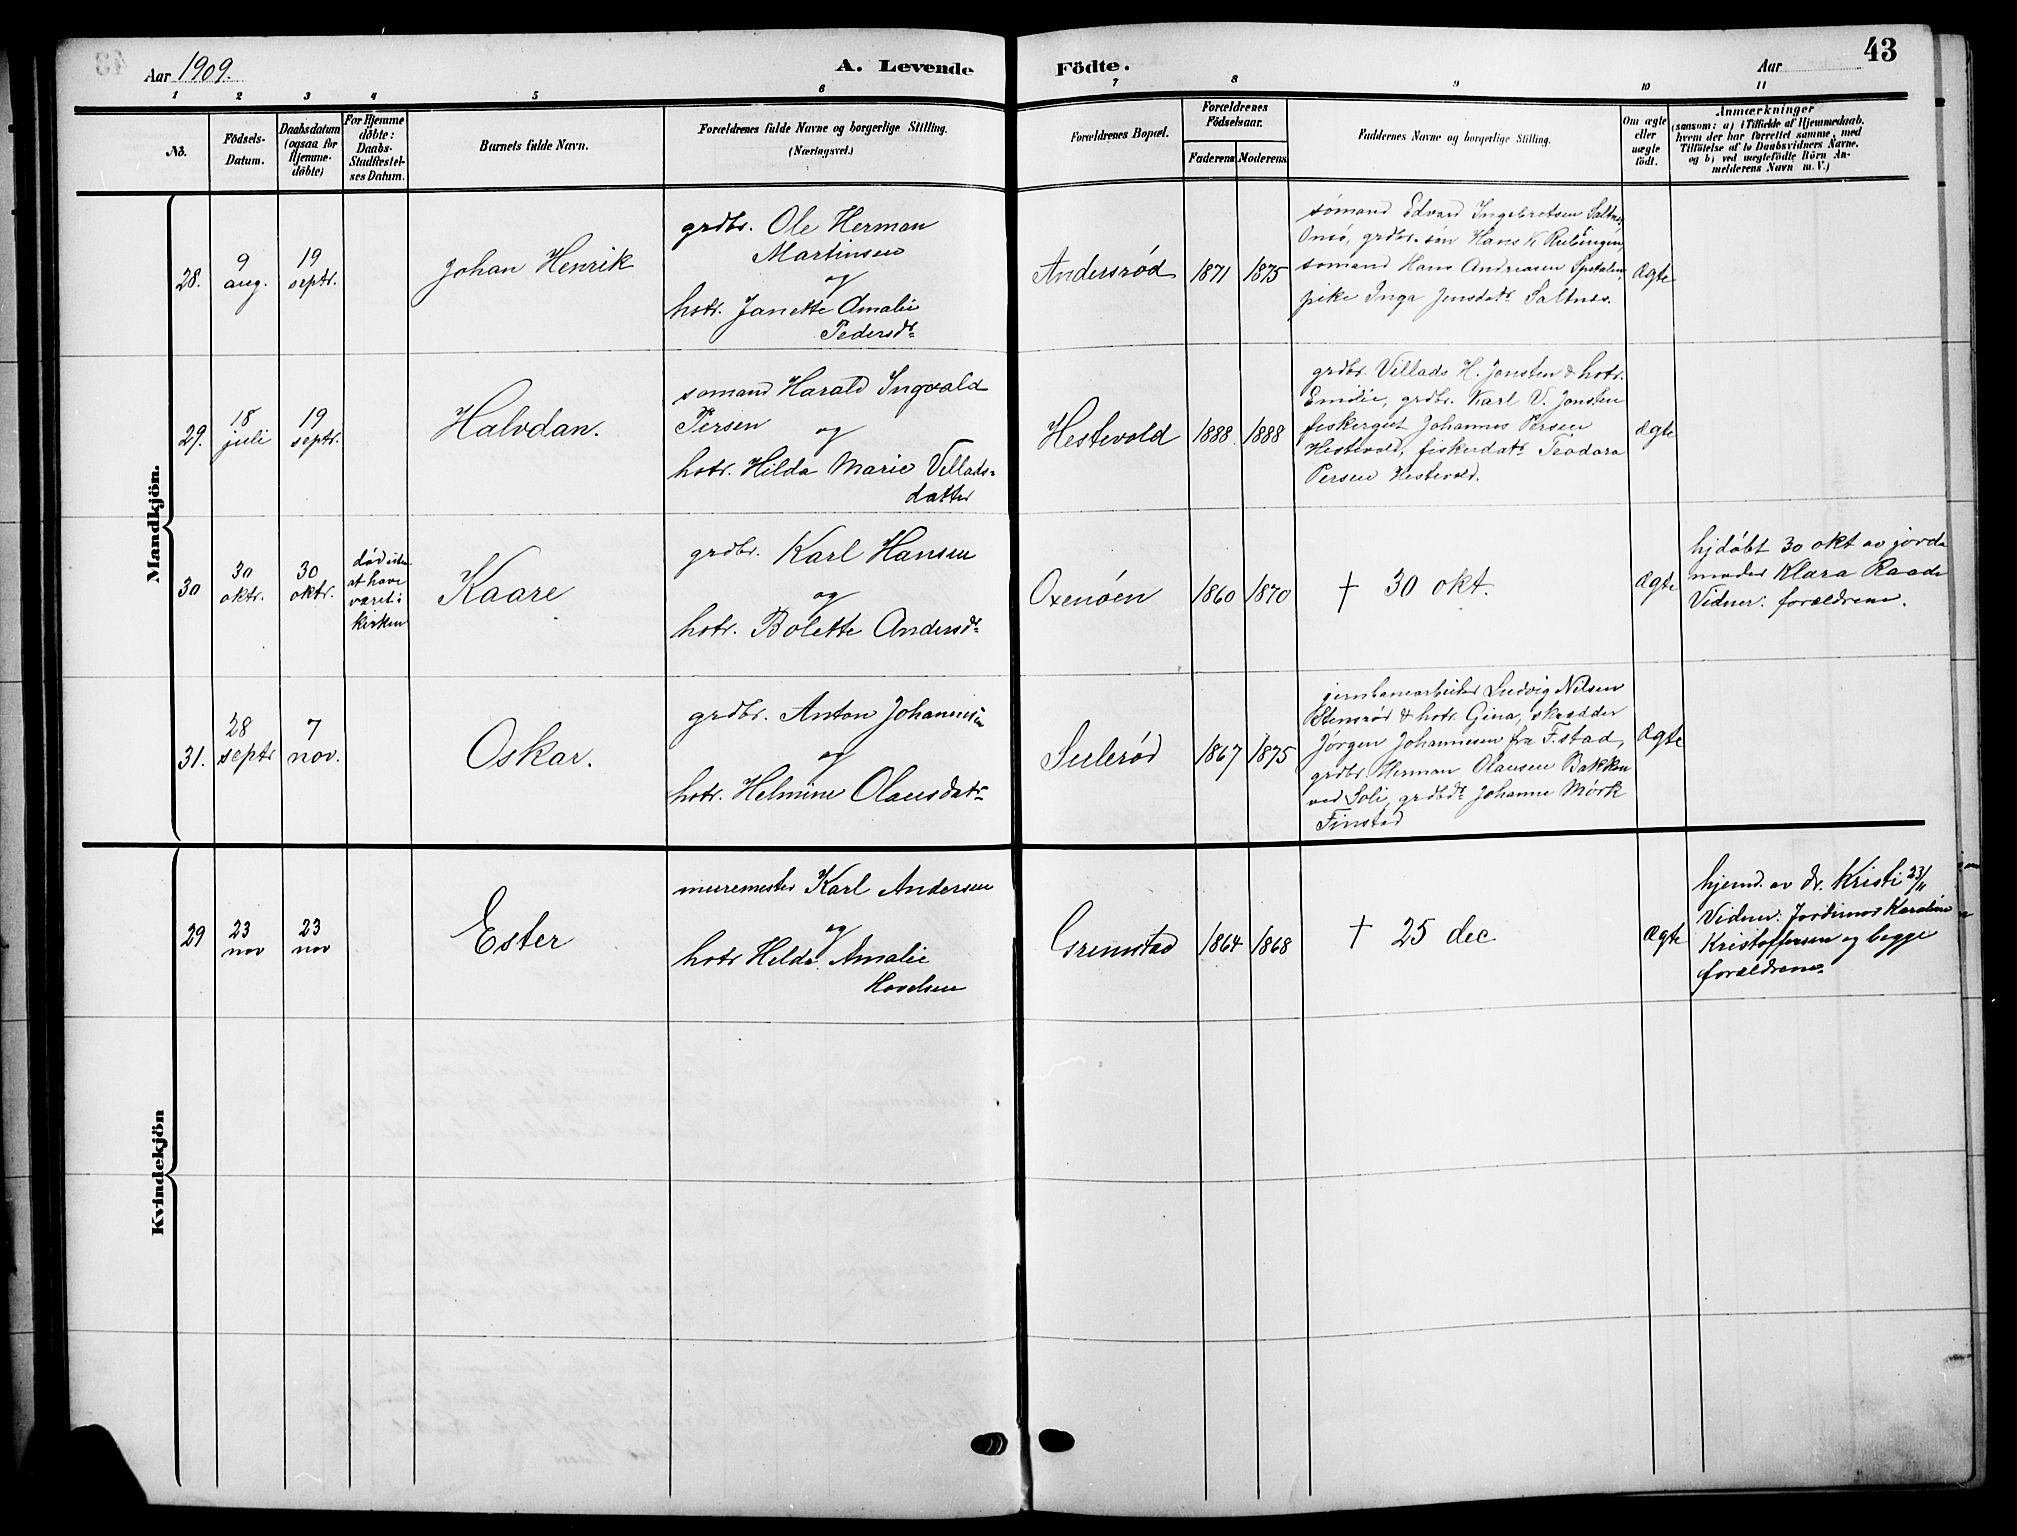 43
Aar 1909.
A. Levende Födte.
Aar
1 2 3 4 5 6 7 8 9 10 11
No.
Födsels-
Datum.
Daabsdatum
(ogsaa for
Hjemme-
döbte)
For Hjemme
döbte:
Daabs-
Stadfæstel-
ses Datum.
Barnets fulde Navn.
Forældrenes fulde Navne og borgerlige Stilling.
(Næringsvei.)
Forældrenes Bopæl.
Forældrenes
Födselsaar.
Faderens
Moderens
Faddernes Navne og borgerlige Stilling.
Om ægte
eller
uægte
födt.
Anmærkninger
(saasom: a) i Tilfælde af Hjemmedaab.
hvem der har forrettet samme, med
Tilföielse af to Daabsvidners Navne.
og b) ved uægtefödte Börn An-
melderens Navn m. V.)
Mandkjön.
28.
9
aug.
19
septr.
Johan Henrik
grdbr. Ole Herman
Martinsen
og
hstr. Janette Amalie
Pedersdr
Andersrød
1871
1875
sømand Edvard Ingebretsen Saltnes,
Onsø, grdbr. søn Hans K
sømand Hans Andreasen Spetalen,
pike Inga Jensdatr Saltnes.
Ægte
29.
18
juli
19
septr.
Halvdan.
sømand Harald Ingvald
Persen
og
hstr. Hilda Marie Villads-
datter
Hestevold
1888
1888
grdbr. Villads H. Jonsten & hstr.
Emilie, grdbr. Karl V. Jonsten
fiskergut Johannes Persen
Hestevold, fiskerdatr Teodora
Persen Hestevold.
Ægte
30
30
oktr.
30
oktr.
død uten
at have
været i
kirken
Kaare
grdbr. Karl Hansen
og
hstr. Bolette Andersdr
Oxenøen
1860
1870
† 30 okt.
Ægte
hjdøbt 30 okt av jorda
moder Klara Raade
Vidner: forældrene.
31.
28
septr
7
nov.
Oskar.
grdbr. Anton Johannesen
og
hstr. Helmine Olausdatr
Sulerød
1867
1875
jernbanearbeider Ludvig Nilsen
Stensrød & hstr. Gina, skrædder
Jørgen Johannesen fra F.stad,
grdbr. Herman Olausen Bakken
ved Soli, grdbdr Johanne Mørk
Finstad
Ægte
Kvindekjön
29
23
nov
23
nov
Ester
muremester Karl Andersen
og
hstr Hilda Amalie
Hovelsen
Grimstad
1864
1868
† 25 dec
Ægte
hjemd. av dr. Kristi 23/11
Vidner: Jordmor Karoline
Kristoffersen og begge
forældrene